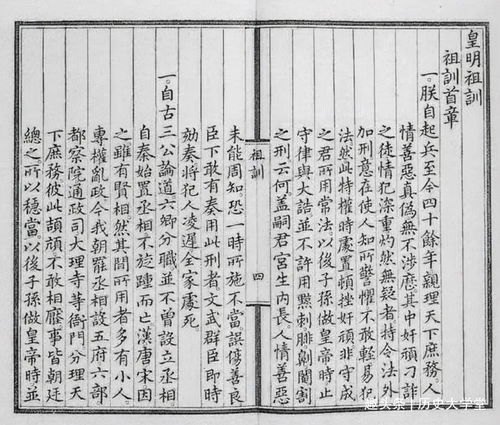 皇明祖訓
祖訓首章
一。朕自起兵至今四十餘年親理天下庶務。人
情善惡真偽無不涉歷其中奸頑刁詐
之徒情犯深重灼然無疑者特令法外
加刑意在使人知所警懼不敢輕易犯
法然此特權時處置頓挫奸頑非守成
之君所用常法以後子孫做皇帝時止
守律與大誥並不許用黥刺腓劓閹割
之刑云何蓋嗣君宮生內長人情善惡
祖訓
四
未能周知恐一時所施不當誤傷善良
臣下敢有奏用此刑者文武群臣即時
劾奏將犯人凌遲全家處死
一。自古三公論道六卿分職並不曾設立丞相
自秦始置丞相不旋踵而亡漢唐宋因
之雖有賢相然其間所用者多有小人。
專權亂政今我朝罷丞相設五府六部
都察院通政司大理寺等衙門分理天
下庶務彼此頡頏不敢相壓事皆朝廷
總之所以穩當以後子孫做皇帝時並
头条 历史大学堂